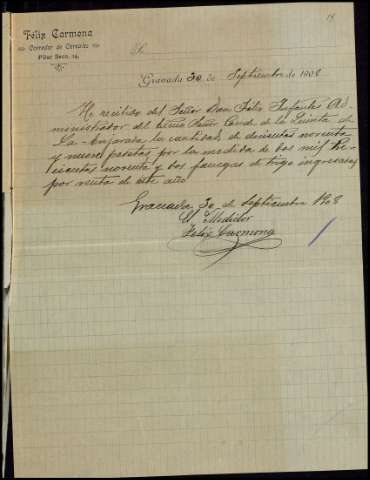 14
Felix Carmona
Corredor de Cereales
Pilar Seco, 14.
S.
Granada 30 de Septiembre de 1908
He recibido del Señor Don Felix Infantes Ad-
ministrador del Señor Conde de la Quinta de
La Enjarada, la cantidad, de doscientas noventa
y nueve pesetas por la medida de dos mil tre-
cientas noventa y dos fanegas de trigo ingresadas
por renta de este año
Granada, 30 de Septiembre 1908
El Medidor
Felix Carmona